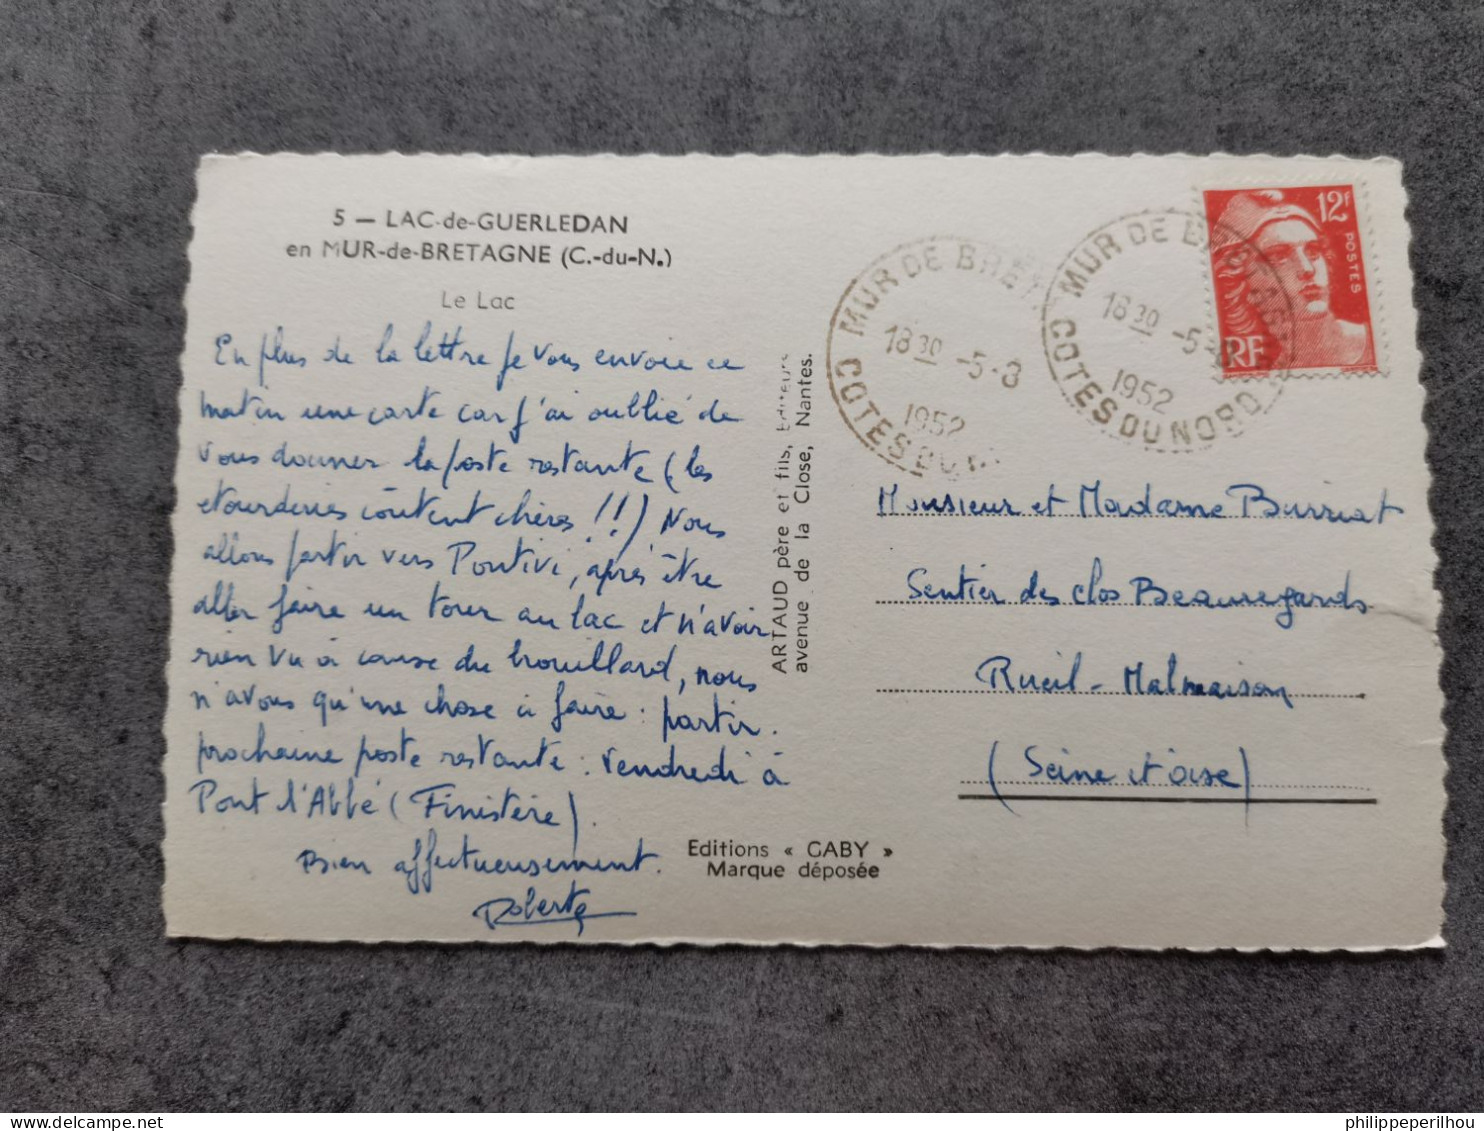 5 — LAC-de-GUERLEDAN
en MUR-de-BRETAGNE (C.-du-N.)
Le Lac
En plus de la lettre je vous envoie ce
matin une carte car j'ai oublié de
vous donner la poste restante (les
etourderies coûtent chères !!) Nous
allons partir vers Pontivi, après être
aller faire un tour au lac et n'avoir
rien vu à cause du brouillard, nous
n'avons qu'une chose à faire : partir.
prochaine poste restante : Vendredi à
Pont l'Abbé (Finistère).
Bien affectueusement.
Roberte
ARTAUD père et fils, Editeurs
avenue de la Close, Nantes.
Editions « GABY »
Marque déposée
MUR DE BRET
18 30 -5-8
1952
COTES DU N
MUR DE BRETAGNE
18 30 -5-8
1952
COTES DU NORD
12f
POSTES
RF
Monsieur et Madame Burriat
Sentier des clos Beauregards
Rueil-Malmaison
(Seine et oise)
philippeperilhou